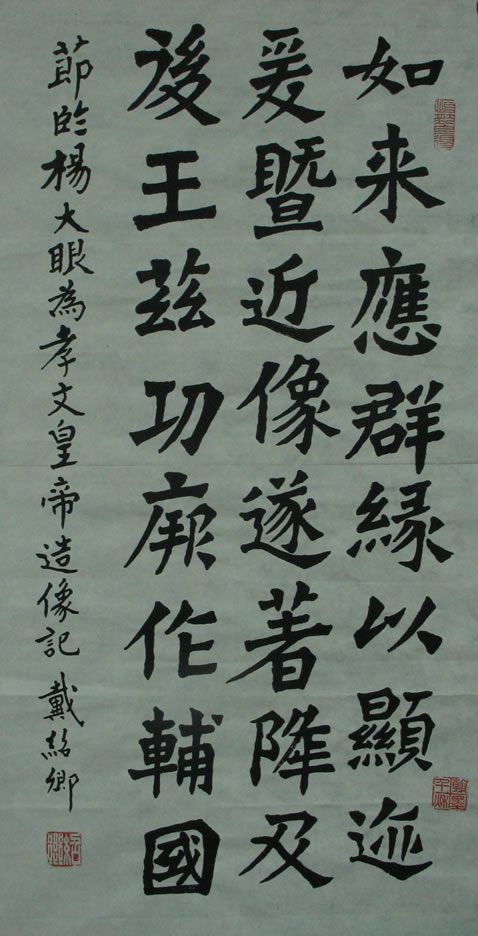 如来應群縁以顯迹
爰暨近像遂著降及
後王兹功厥作輔國
莭臨楊大眼為孝文皇帝造像記 戴紹卿